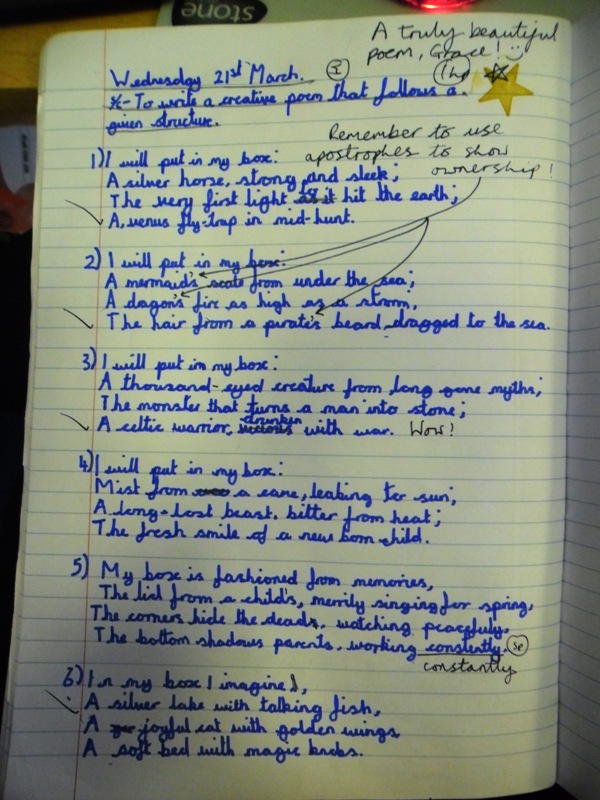 stone
A truly beautiful
poem, Grace!
Wednesday 21st March. I 1hp
To write a creative poem that follows a
given structure.
Remember to use
apostrophes to show
ownership!
1) I will put in my box:
A silver horse, strong and sleek;
The very first light as it hit the earth;
A venus fly-trap in mid-hunt.
2) I will put in my box:
A mermaid's scale from under the sea;
A dagon's fire as high as a storm,
The hair from a pirate's beard, dragged to the sea.
3) I will put in my box:
A thousand-eyed creature from long gone myths;
The monster that turns a man into stone;
A celtic warrior, drunken with war. Wow!
4) I will put in my box:
Mist from a cane, leaking for sun;
A long-lost beast, bitter from heat;
The fresh smile of a new born child.
5) My box is fashioned from memories,
The lid from a child's, merrily singing for spring,
The corners hide the deads, watching peacefuly.
The bottom shadows parents, working constently. sp
constantly
6) In my box I imagined,
A silver lake with talking fish,
A joyful cat with golden wings
A soft bed with magic knobs.